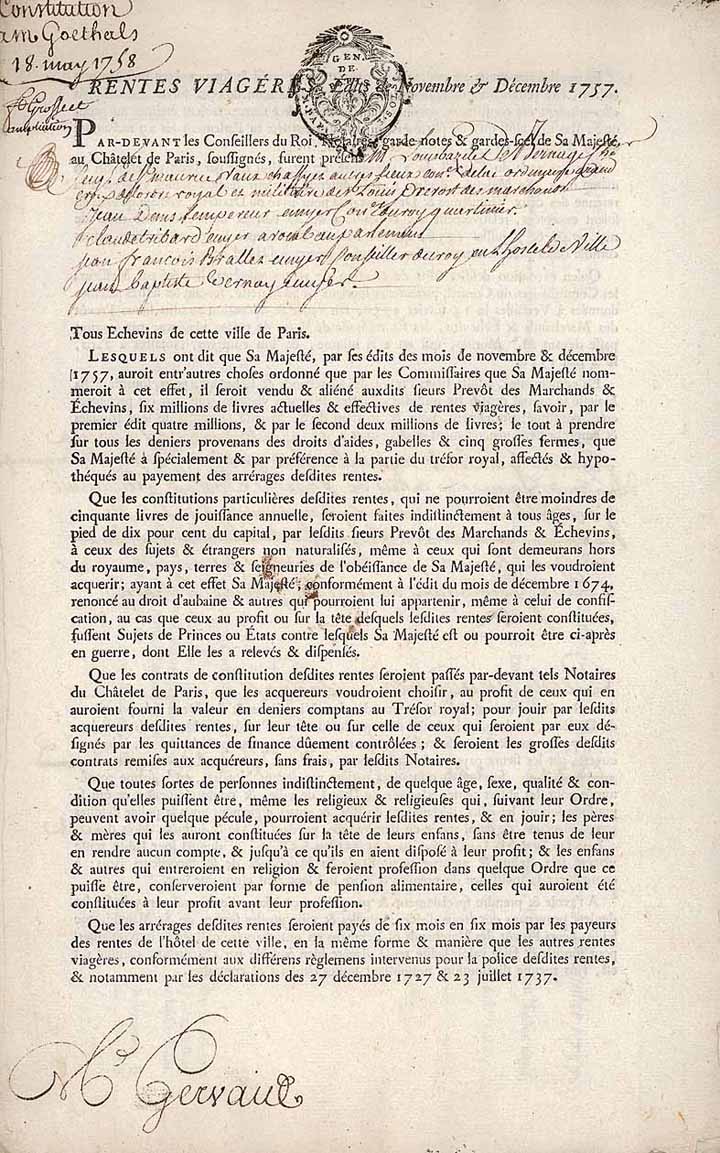 Constitution
am Goethals
18. may 1758
GEN.
DE
RENTES VIAGÉRES Edits de Novembre & Décembre 1757.
PAR-DEVANT les Conseillers du Roi, Notaires, garde-notes & gardes-scel de Sa Majesté
au Châtelet de Paris, soussignés, furent présens
royal et militaire de St Louis Prevost des marchands
Jean Denis Lempereur Cons. du roy quartinier
Claude Tribard avocat au parlement
Jean François Brallet Conseiller du roy en L'hostel de Ville
Jean Baptiste Vernay
Tous Echevins de cette ville de Paris.
LESQUELS ont dit que Sa Majesté, par ses édits des mois de novembre & décembre
1757, auroit entr'autres choses ordonné que par les Commissaires que Sa Majesté nom-
meroit à cet effet, il seroit vendu & aliéné auxdits sieurs Prevôt des Marchands &
Échevins, six millions de livres actuelles & effectives de rentes viagères, savoir, par le
premier édit quatre millions, & par le second deux millions de livres; le tout à prendre
sur tous les deniers provenans des droits d'aides, gabelles & cinq grosses fermes, que
Sa Majesté a spécialement & par préférence à la partie du trésor royal, affectés & hypo-
théqués au payement des arrérages desdites rentes.
Que les constitutions particulières desdites rentes, qui ne pourroient être moindres de
cinquante livres de jouissance annuelle, seroient faites indistinctement à tous âges, sur le
pied de dix pour cent du capital, par lesdits sieurs Prevôt des Marchands & Échevins,
à ceux des sujets & étrangers non naturalisés, même à ceux qui sont demeurans hors
du royaume, pays, terres & seigneuries de l'obéissance de Sa Majesté, qui les voudroient
acquerir; ayant à cet effet Sa Majesté, conformément à l'édit du mois de décembre 1674,
renoncé au droit d'aubaine & autres qui pourroient lui appartenir, même à celui de confis-
cation, au cas que ceux au profit ou sur la tête desquels lesdites rentes seroient constituées,
fussent Sujets de Princes ou États contre lesquels Sa Majesté est ou pourroit être ci-après
en guerre, dont Elle les a relevés & dispensés.
Que les contrats de constitution desdites rentes seroient passés par-devant tels Notaires
du Châtelet de Paris, que les acquereurs voudroient choisir, au profit de ceux qui en
auroient fourni la valeur en deniers comptans au Trésor royal; pour jouir par lesdits
acquereurs desdites rentes, sur leur tête ou sur celle de ceux qui seroient par eux dé-
signés par les quittances de finance dûement contrôlées; & seroient les grosses desdits
contrats remises aux acquéreurs, sans frais, par lesdits Notaires.
Que toutes sortes de personnes indistinctement, de quelque âge, sexe, qualité & con-
dition qu'elles puissent être, même les religieux & religieuses qui, suivant leur Ordre,
peuvent avoir quelque pécule, pourroient acquérir lesdites rentes, & en jouir; les pères
& mères qui les auront constituées sur la tête de leurs enfans, sans être tenus de leur
en rendre aucun compte, & jusqu'à ce qu'ils en aient disposé à leur profit; & les enfans
& autres qui entreroient en religion & feroient profession dans quelque Ordre que ce
puisse être, conserveroient par forme de pension alimentaire, celles qui auroient été
constituées à leur profit avant leur profession.
Que les arrérages desdites rentes seroient payés de six mois en six mois par les payeurs
des rentes de l'hôtel de cette ville, en la même forme & manière que les autres rentes
viagères, conformément aux différens règlemens intervenus pour la police desdites rentes,
& notamment par les déclarations des 27 décembre 1727 & 23 juillet 1737.
Me Gervais